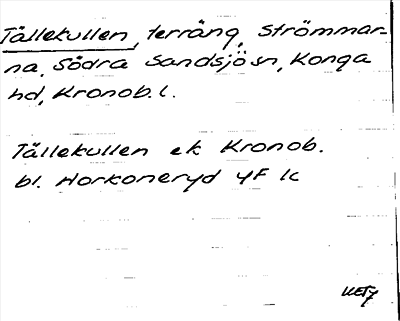 Tällekullen, terräng, Strömmar-
na, Södra Sandsjö sn, Konga
hd, Kronob. l.
Tällekullen ek Kronob.
bl. Horkoneryd 4F 1c